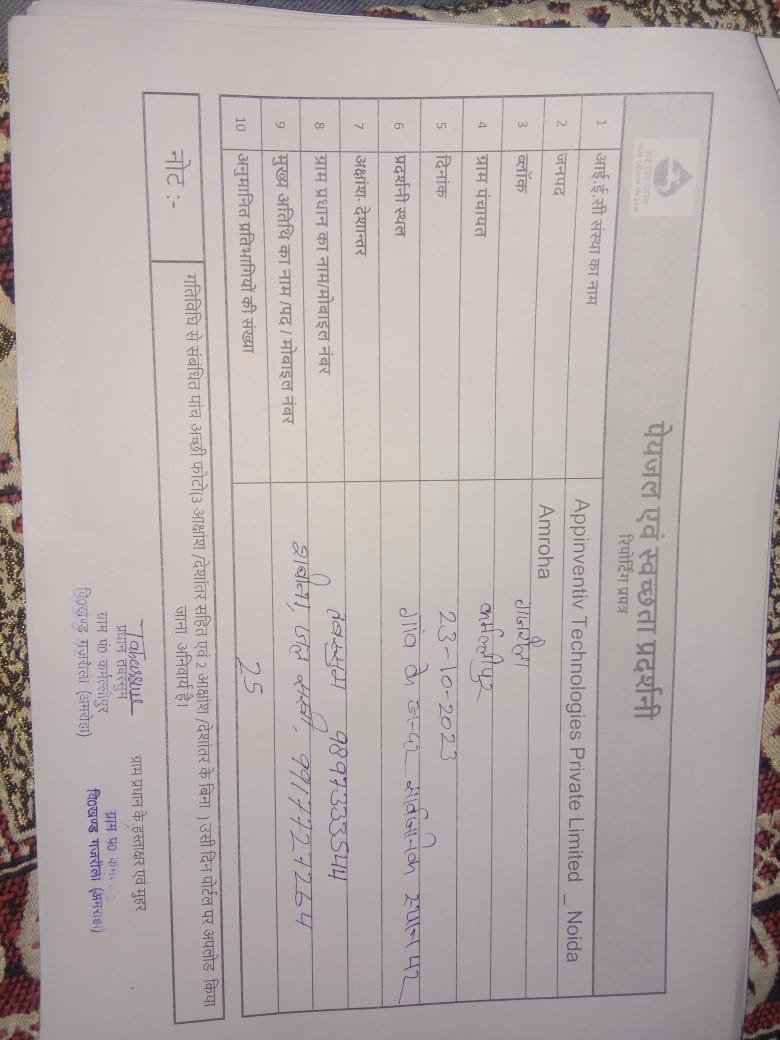 हर घर जल
जल जीवन मिशन
पेयजल एवं स्वच्छता प्रदर्शनी
रिपोर्टिंग प्रपत्र
1 आई.ई.सी संस्था का नाम Appinventiv Technologies Private Limited _ Noida
2 जनपद Amroha
3 ब्लॉक गजरौला
4 ग्राम पंचायत
5 दिनांक 23-10-2023
6 प्रदर्शनी स्थल गांव के अन्दर सार्वजनिक स्थान पर
7 अक्षांश- देशान्तर
8 ग्राम प्रधान का नाम/मोबाइल नंबर तबस्सुम 9897333544
9 मुख्य अतिथि का नाम /पद / मोबाइल नंबर जल सखी, 9917727264
10 अनुमानित प्रतिभागियों की संख्या 25
नोट :- गतिविधि से संबंधित पांच अच्छी फोटो(3 आक्षांश /देशांतर सहित एवं 2 आक्षांश /देशांतर के बिना ) उसी दिन पोर्टल पर अपलोड किया
जाना अनिवार्य है।
प्रधान तबस्सुम
ग्राम पं0
वि0खण्ड गजरौला (अमरोहा)
ग्राम प्रधान के हस्ताक्षर एवं मुहर
ग्राम पं0
वि0खण्ड गजरौला (अमरोहा)